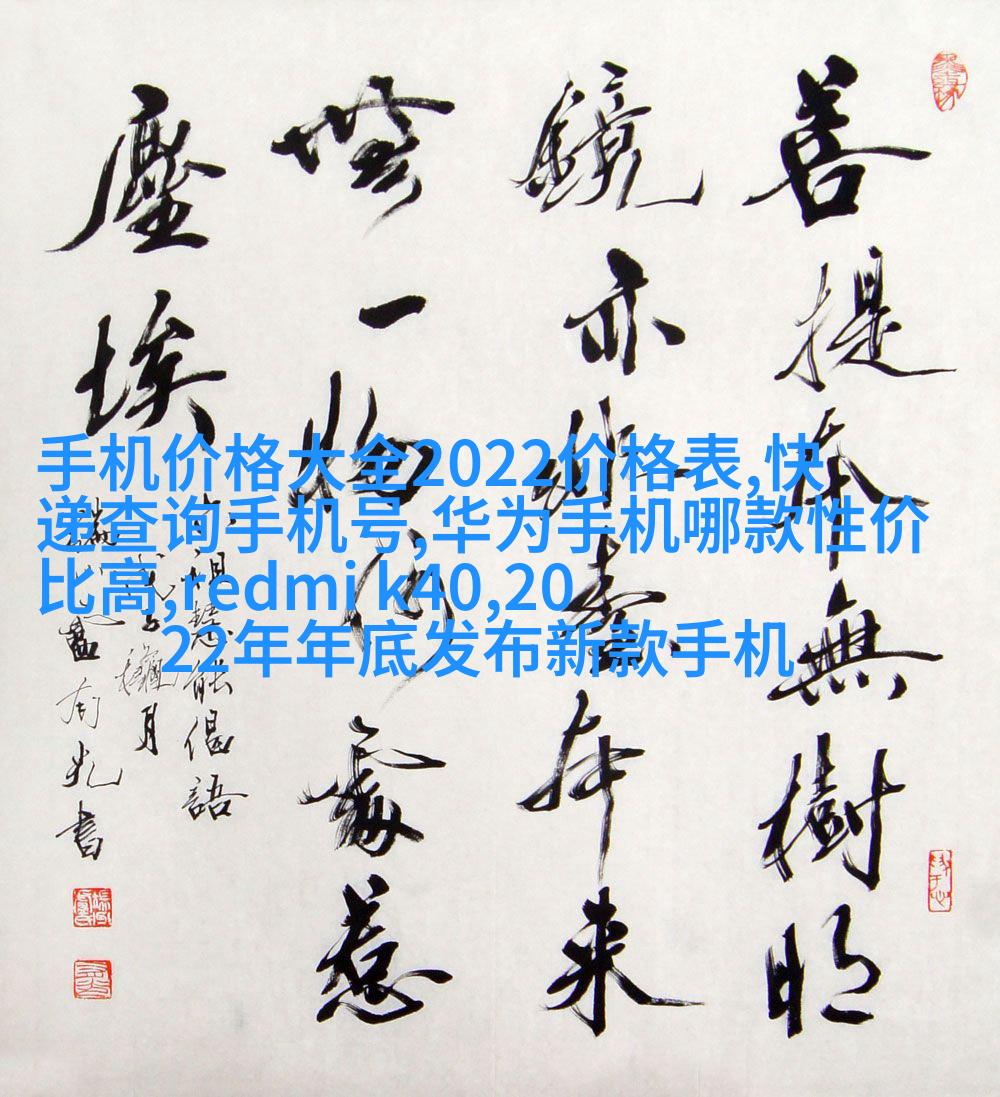 菩提本無樹明
鏡亦非臺本来
無一物何處惹
塵埃
六祖慧能偈語
月
書
手机价格大全2022价格表,快
递查询手机号,华为手机哪款性价
比高,redmi k40,20
22年年底发布新款手机